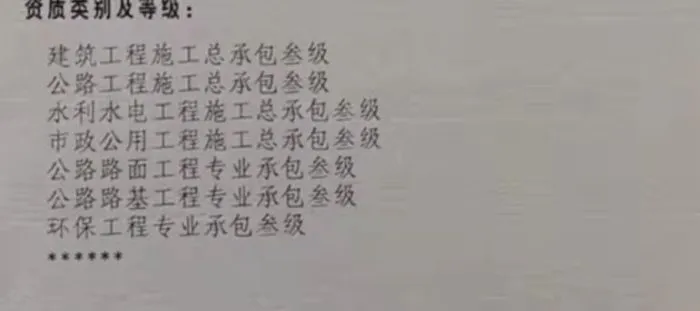 资质类别及等级：
建筑工程施工总承包叁级
公路工程施工总承包叁级
水利水电工程施工总承包叁级
市政公用工程施工总承包叁级
公路路面工程专业承包叁级
公路路基工程专业承包叁级
环保工程专业承包叁级
******